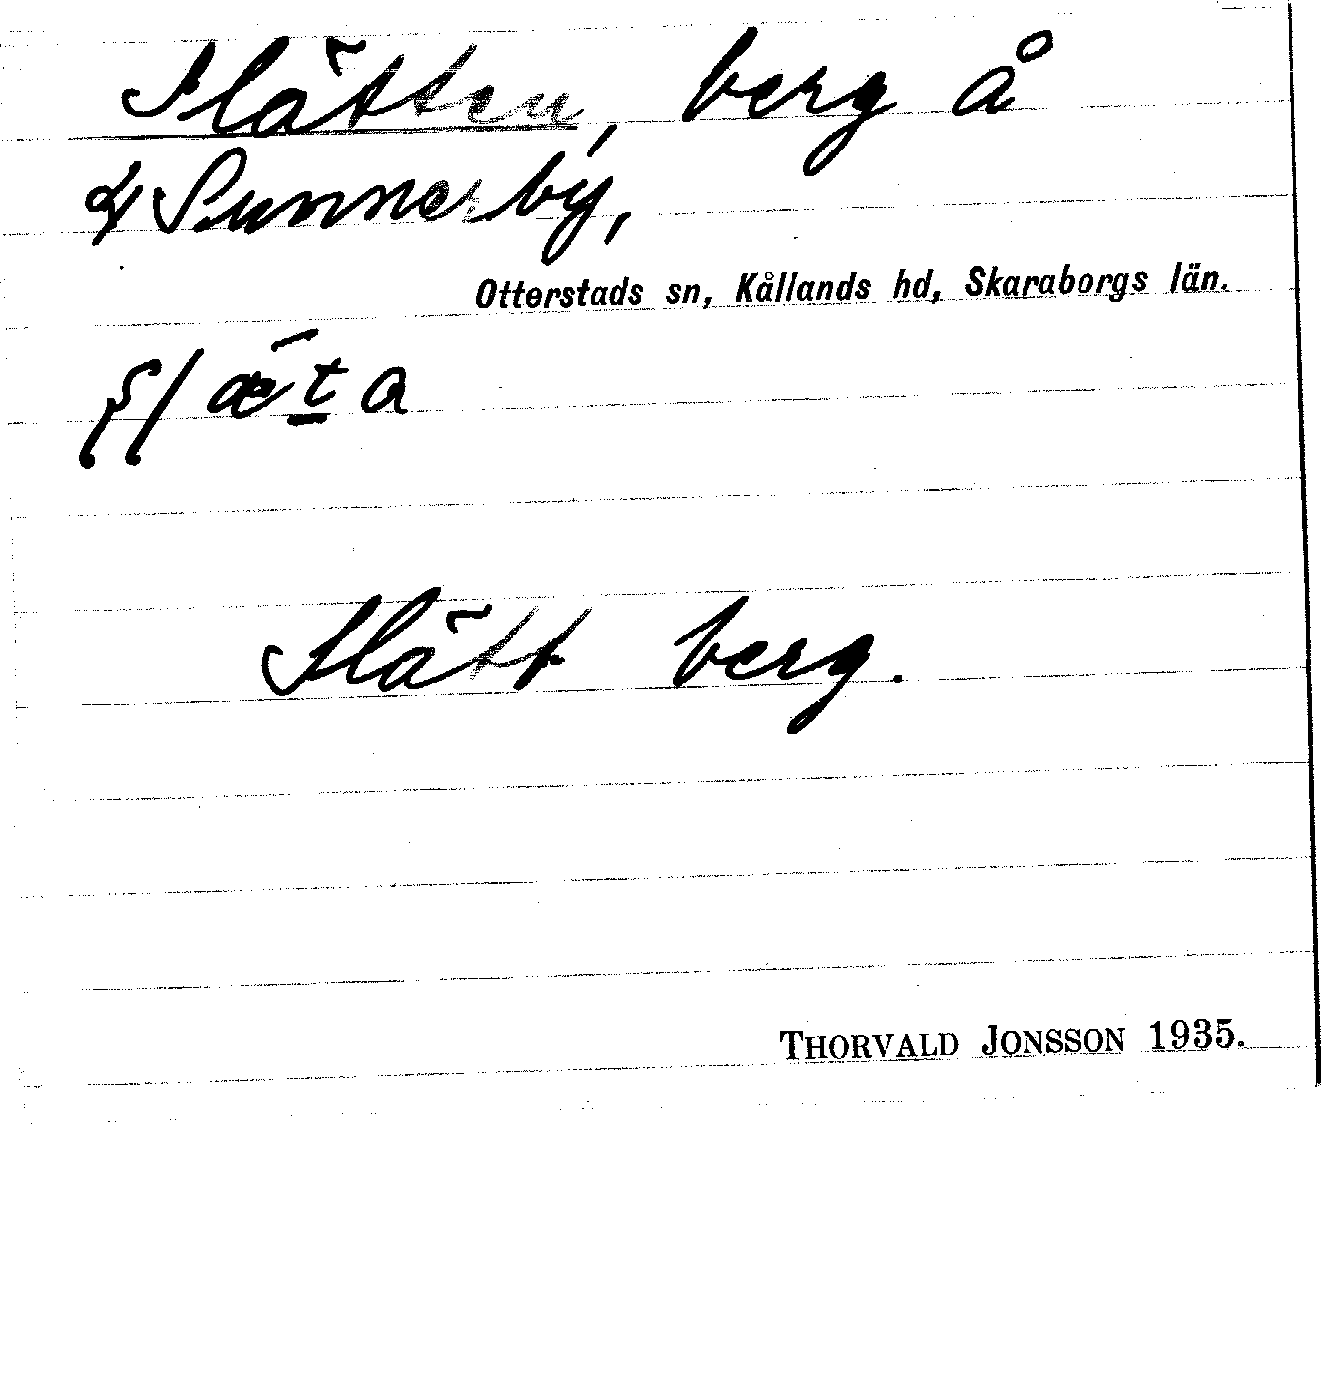 Slätten, berg å
Sunnerby,
Otterstads sn, Kållands hd, Skaraborgs län.
Slätt berg.
THORVALD JONSSON 1935.